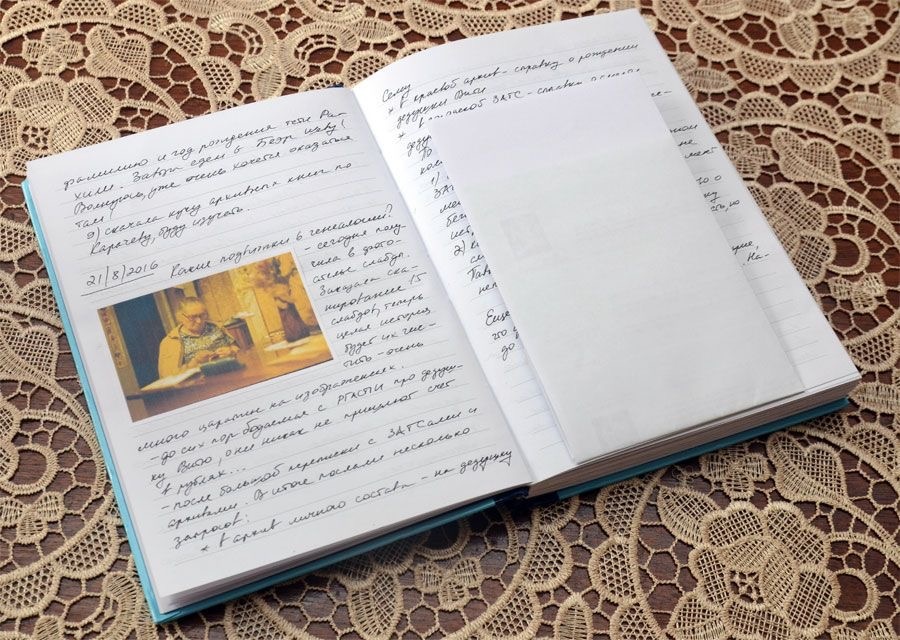 фамилию и год рождения тети Ра-
хили. Завтра едем в Беэр Шеву!
Волнуюсь, уже очень хочется оказаться
там!
9) скачала кучу архивных книг по
Карачеву, буду изучать.
21/8/2016 Какие подвижки в генеалогии?
- сегодня полу-
чила в фото-
ателье слайды.
Заказала ска-
нирование 15
слайдов, теперь
целая история,
будет их чис-
тить - очень
много царапин на изображениях.
- до сих пор бодаемся с РГАСПИ про дедуш-
ку Витю, они никак не пришлют счет
в рублях...
- после большой переписки с ЗАГСами и
архивами. В итоге послали несколько
запросов:
* в архив личного состава - на дедушку
Сему
* в краевой архив - справку о рождении
дедушки Вити
* в ЗАГС - справки
деду
То
ком
1)
ЗАГ
не
мо
бег
о
2)
но
се
Гав
неп
На-
Еще
что
до